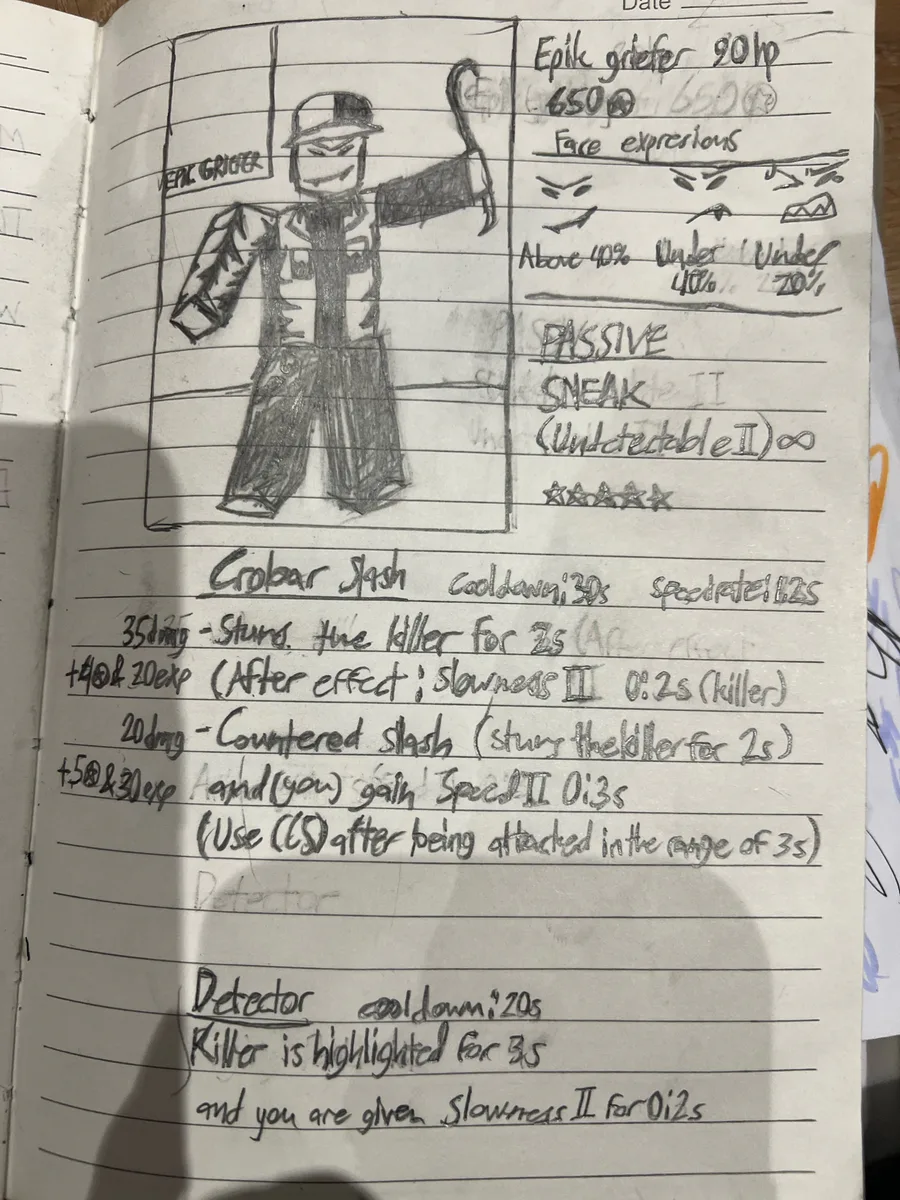 Date
EPIC GRIEFER
Epik griefer 90hp
650
Face expresions
Above 40% Under 40% Under 20%
PASSIVE
SNEAK
(Undetectable II) ∞
☆☆☆☆☆
Crobar slash cooldown: 30s
35dmg - Stuns the killer for 2s (After effect
& 20exp (After effect: Slowness II 0:2s (killer)
20dmg - Countered slash (stuns the killer for 2s)
+5 & 30exp and (you) gain Speed II 0:3s
(Use (CS) after being attacked in the range of 3s)
Detector
Detector cooldown: 20s
Killer is highlighted for 3s
and you are given Slowness II for 0:2s